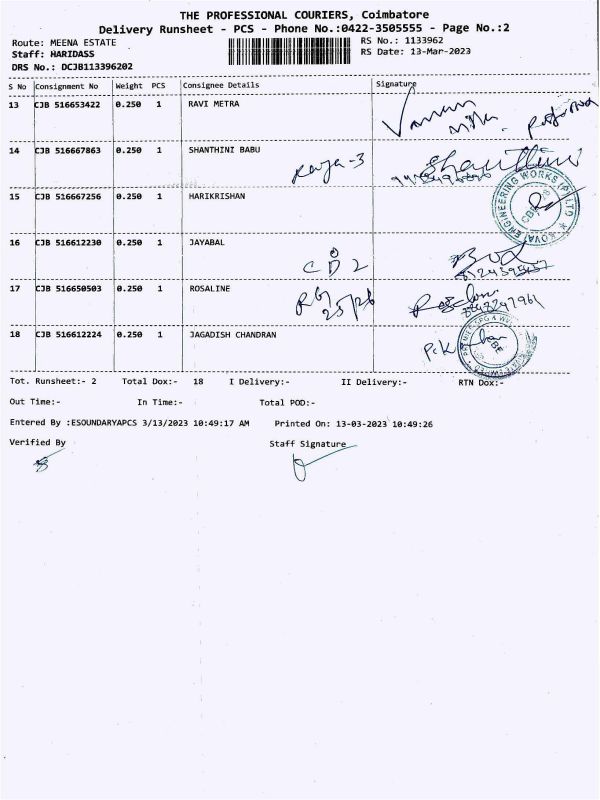 THE PROFESSIONAL COURIERS, Coimbatore
Delivery Runsheet - PCS - Phone No.:0422-3505555 - Page No.:2
Route: MEENA ESTATE
Staff: HARIDASS
DRS No.: DCJB113396202
RS No.: 1133962
RS Date: 13-Mar-2023
S No Consignment No Weight PCS Consignee Details Signature
13 CJB 516653422 0.250 1 RAVI METRA
14 CJB 516667863 0.250 1 SHANTHINI BABU
15 CJB 516667256 0.250 1 HARIKRISHAN
16 CJB 516612230 0.250 1 JAYABAL
17 CJB 516650503 0.250 1 ROSALINE
18 CJB 516612224 0.250 1 JAGADISH CHANDRAN
Tot. Runsheet:- 2 Total Dox:- 18 I Delivery:- II Delivery:- RTN Dox:-
Out Time:- In Time:- Total POD:-
Entered By :ESOUNDARYAPCS 3/13/2023 10:49:17 AM Printed On: 13-03-2023 10:49:26
Verified By Staff Signature